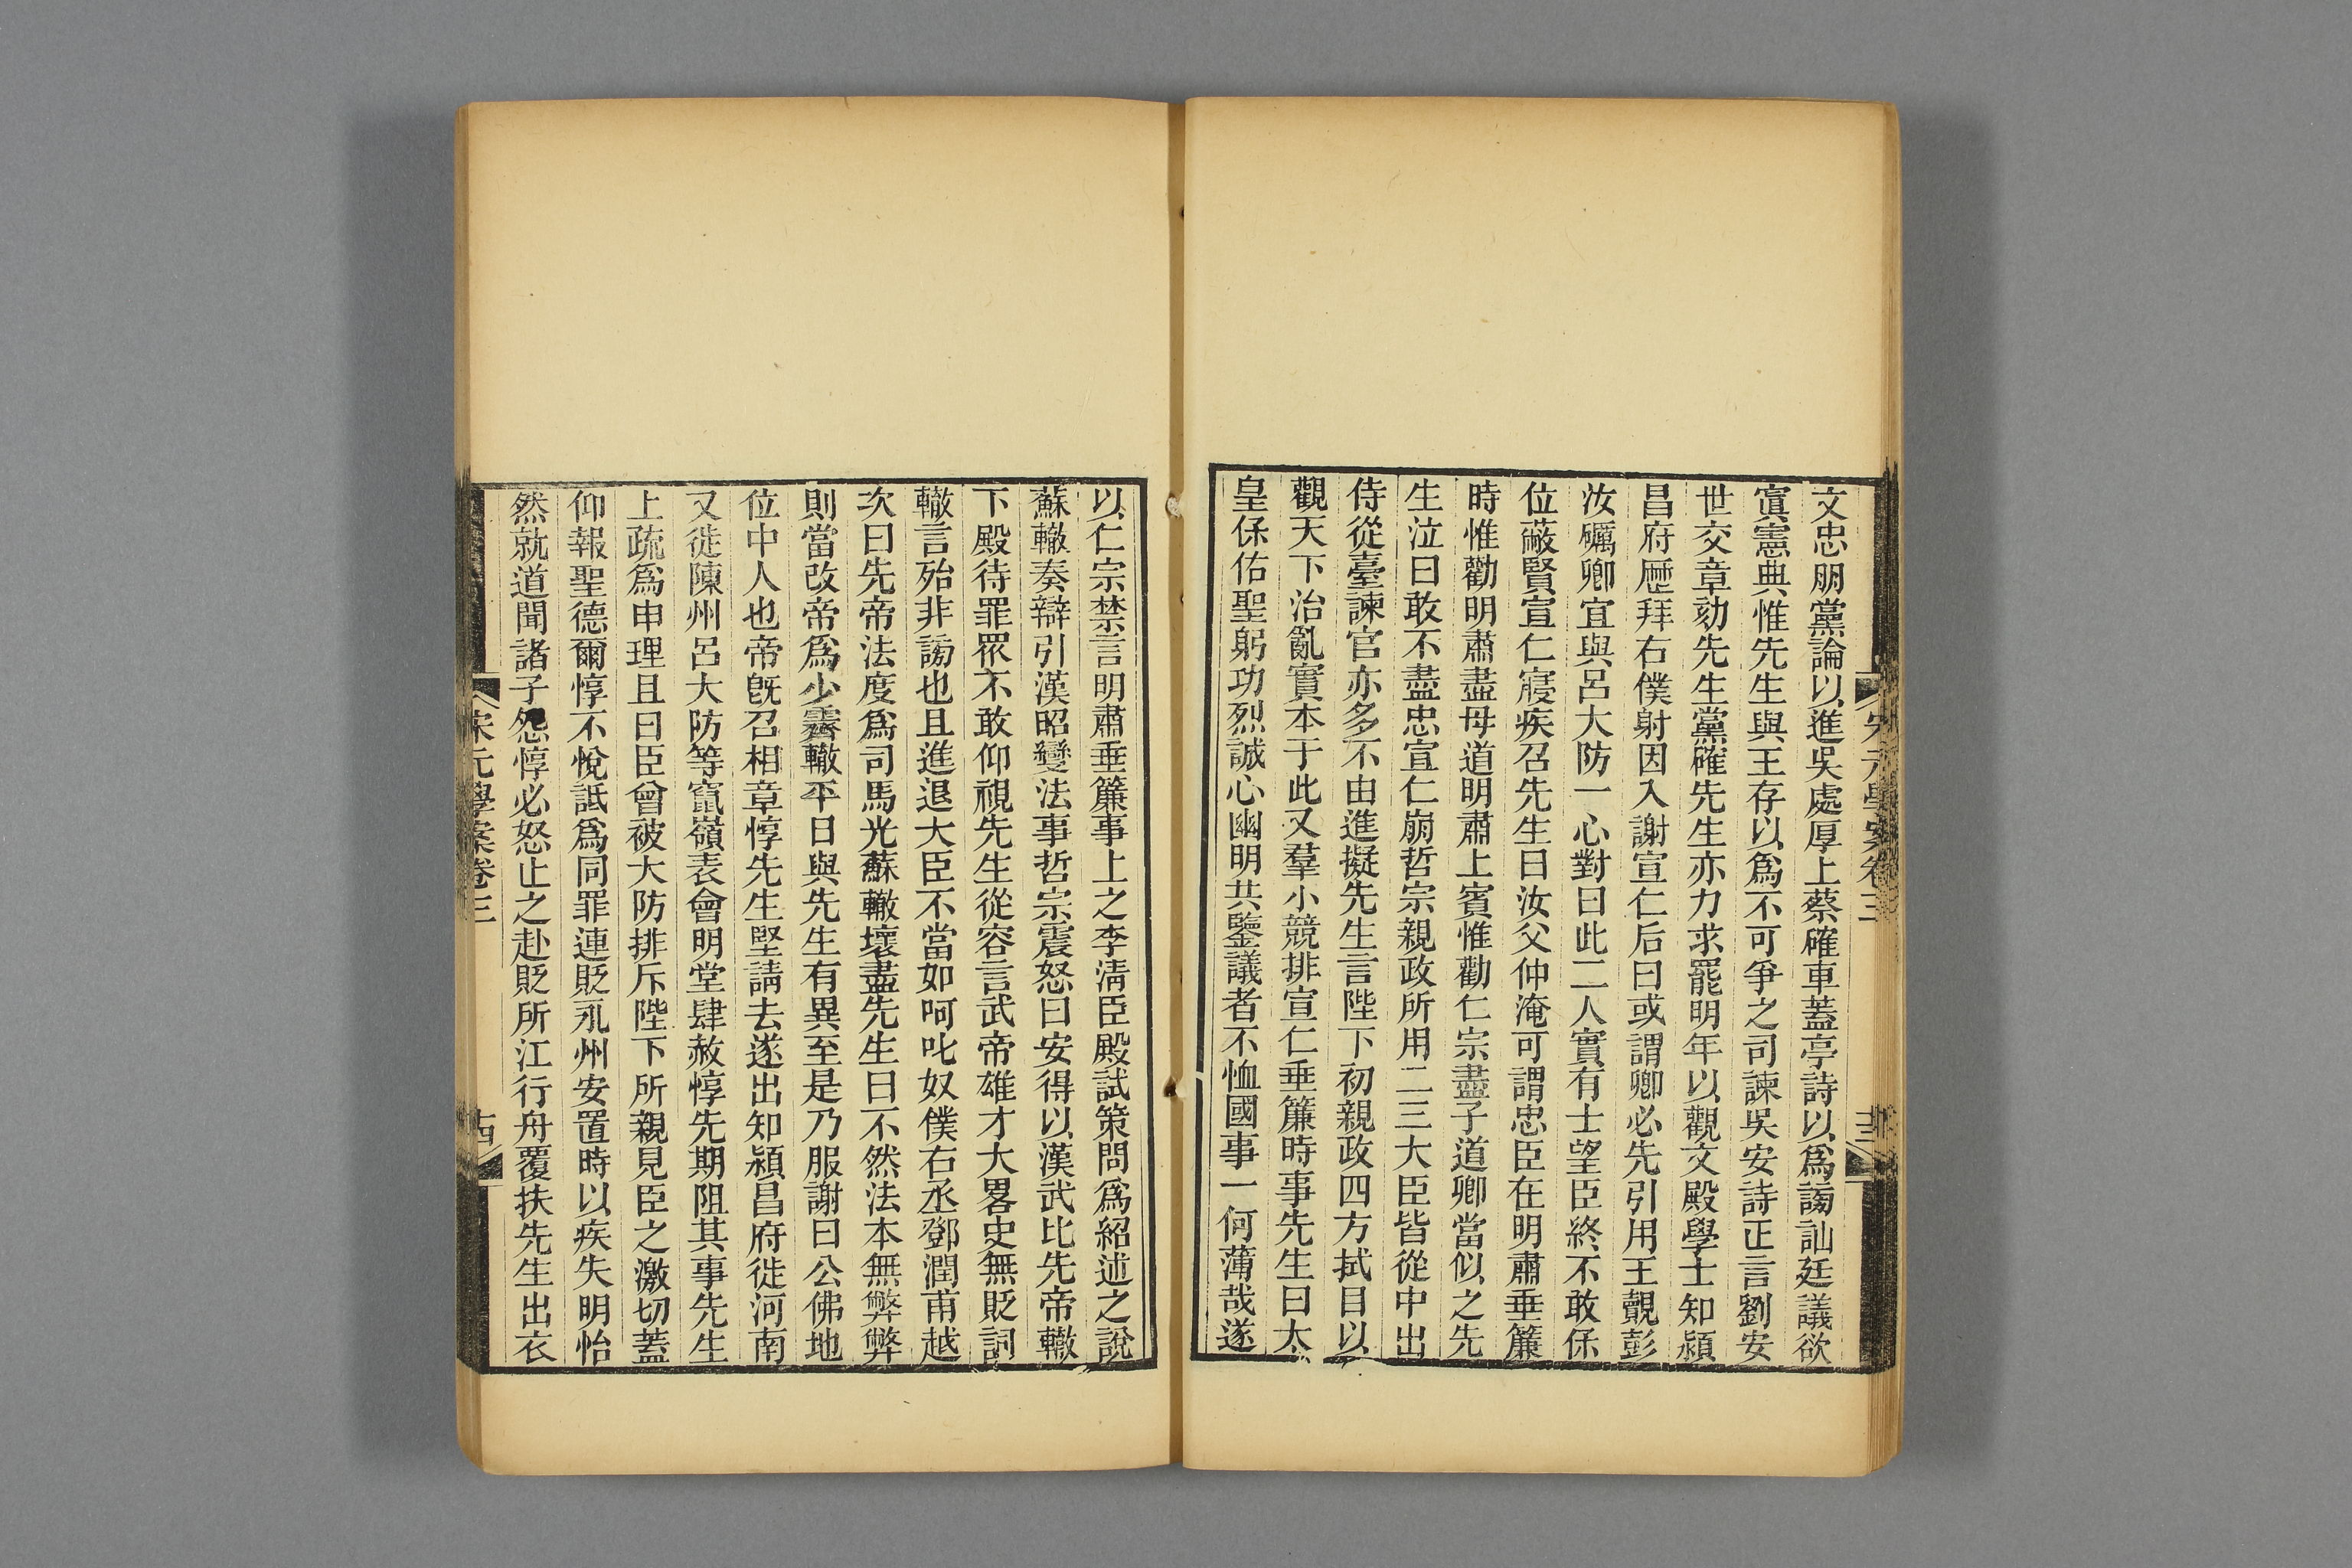 文忠朋黨論以進吳處厚上蔡確車蓋亭詩以爲謗訕廷議欲
寘憲典惟先生與王存以爲不可爭之司諫吳安詩正言劉安
世交章劾先生黨確先生亦力求罷明年以觀文殿學士知潁
昌府歷拜右僕射因入謝宣仁后曰或謂卿必先引用王覿彭
汝礪卿宜與呂大防一心對曰此二人實有士望臣終不敢保
位蔽賢宣仁寢疾召先生曰汝父仲淹可謂忠臣在明肅垂簾
時惟勸明肅盡母道明肅上賓惟勸仁宗盡子道卿當似之先
生泣曰敢不盡忠宣仁崩哲宗親政所用二三大臣皆從中出
侍從臺諫官亦多不由進擬先生言陛下初親政四方拭目以
觀天下治亂實本于此又羣小競排宣仁垂簾時事先生曰太
皇保佑聖躬功烈誠心幽明共鑒議者不恤國事一何薄哉遂
宋元學案卷三
以仁宗禁言明肅垂簾事上之李淸臣殿試策問爲紹述之說
蘇轍奏辯引漢昭變法事哲宗震怒曰安得以漢武比先帝轍
下殿待罪眾不敢仰視先生從容言武帝雄才大畧史無貶詞
轍言殆非謗也且進退大臣不當如呵叱奴僕右丞鄧潤甫越
次曰先帝法度爲司馬光蘇轍壞盡先生曰不然法本無弊弊
則當改帝爲少霽轍平日與先生有異至是乃服謝曰公佛地
位中人也帝旣召相章惇先生堅請去遂出知潁昌府徙河南
又徙陳州呂大防等竄嶺表會明堂肆赦惇先期阻其事先生
上疏爲申理且曰臣曾被大防排斥陛下所親見臣之激切蓋
仰報聖德爾惇不悅詆爲同罪連貶永州安置時以疾失明怡
然就道聞諸子怨惇必怒止之赴貶所江行舟覆扶先生出衣
宋元學案卷三
十四